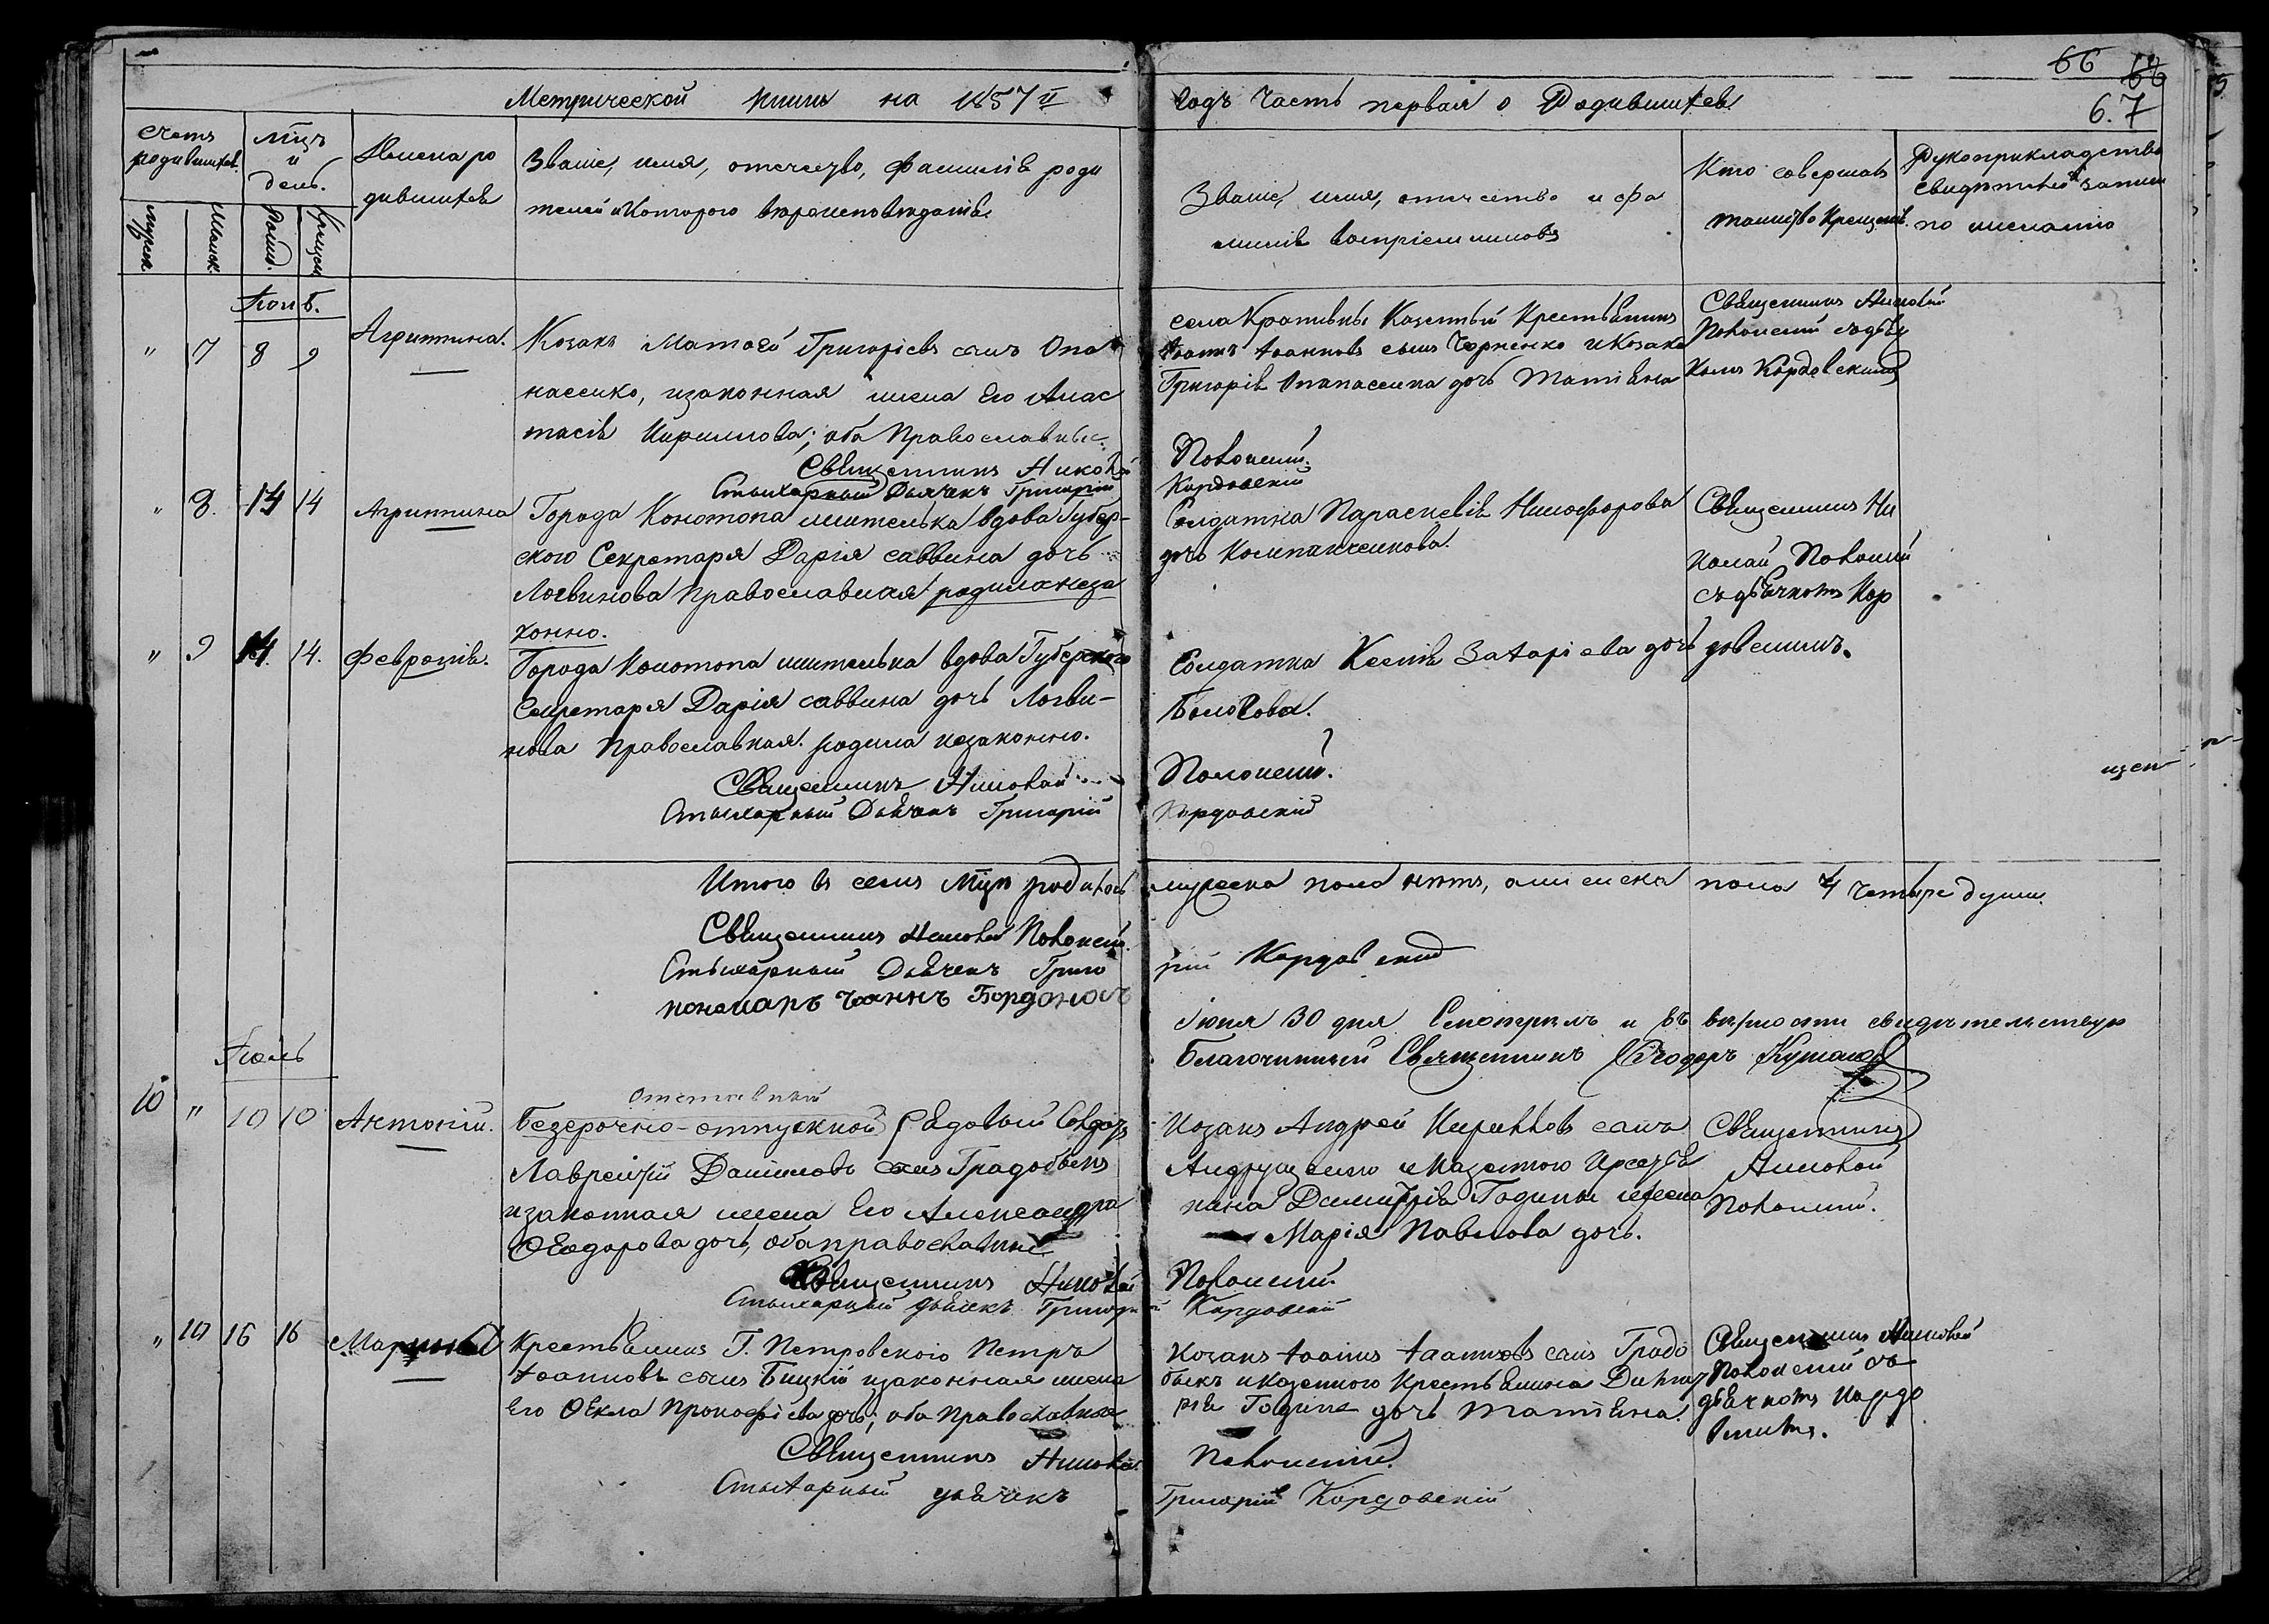 66
6.7
Метрической книги на 1857 й
годъ Часть первая о Родившихся
Счетъ родившихся.
Мцъ и день.
Имена родившихся
Званіе, имя, отечество, фамилія роди
телей и Которого вѣроисповѣданія
Званіе, имя, отечество и фа
милія воспріемниковъ
Кто совершалъ
таинство Крещенія.
Рукоприкладство
свидѣтелей записи
по желанію
мужск.
женск.
Рожд.
Крещен.
Іюнь.
" 7 8 9
Агриппина.
Козакъ Матѳей Григоріевъ сынъ Опа
насенко, изаконная жена Его Анас
тасія Кирилова; оба Православные.
Священникъ Николай
Стихарный Дьячекъ Григорій
села Крапивны Казенный Крестьянинъ
Іоаннъ Іоанновъ сынъ Чорненко и Козака
Григорія Опанасенка дочь Татіяна
Священникъ Николай
Кордовскимъ
Кордовскій
" 8. 14 14
Агриппина
Города Конотопа жителька вдова Губер-
ского Секретаря Дарія саввина дочь
Логвинова Православная родила неза
конно.
Солдатка Параскевія Никифорова
дочь
Священникъ Ни
колай
съ дьячкомъ Кор
довскимъ.
" 9 14. 14.
Февронія.
Города Конотопа жителька вдова Губерского
Секретаря Дарія саввина дочь Логви-
нова Православная. родила незаконно.
Священникъ Николай
Стихарный Дьячекъ Григорій
Солдатка Ксенія Захаріева дочь
Кордовскій
Итого въ семъ Мцѣ родилось
мужеска пола нѣтъ, а женска пола 4 четыре души.
Священникъ Николай
Стихарный Дьячекъ Григо
рій Кордовскій
пономаръ Іоаннъ Бордоносъ
Іюня 30 дня Смотрелъ и въ вѣрности свидѣтельствую
Благочинный Священникъ Ѳеодоръ
Іюль
10 " 10 10
Антоній.
отставный
Безсрочно-отпускной Рядовый Солдатъ
Лаврентій Даниловъ сынъ Градобыкъ
изаконная жена Его Александра
Ѳеодорова дочь, оба православные
Священникъ Николай
Стихарный дьячекъ Григорій
Козакъ Андрей Кириловъ сынъ
Андрущенко и Казенного Крестья
нина Димитрія Годины жена
Марія Павлова дочь.
Священникъ
Николай
Кордовскій
" 10 16 16
Марина
Крестьянинъ Г. Петровского Петръ
Іоанновъ сынъ Бицкій изаконная жена
Его Ѳекла Прокофіева дочь; оба Православные
Священникъ Николай
Стихарный дьячекъ
Козакъ Іоаннъ Іоанновъ сынъ Градо
быкъ и Казенного Крестьянина Димит
рія Годины дочь Татіяна.
Священникъ Николай
дьячкомъ Кордо
Григорій Кордовскій